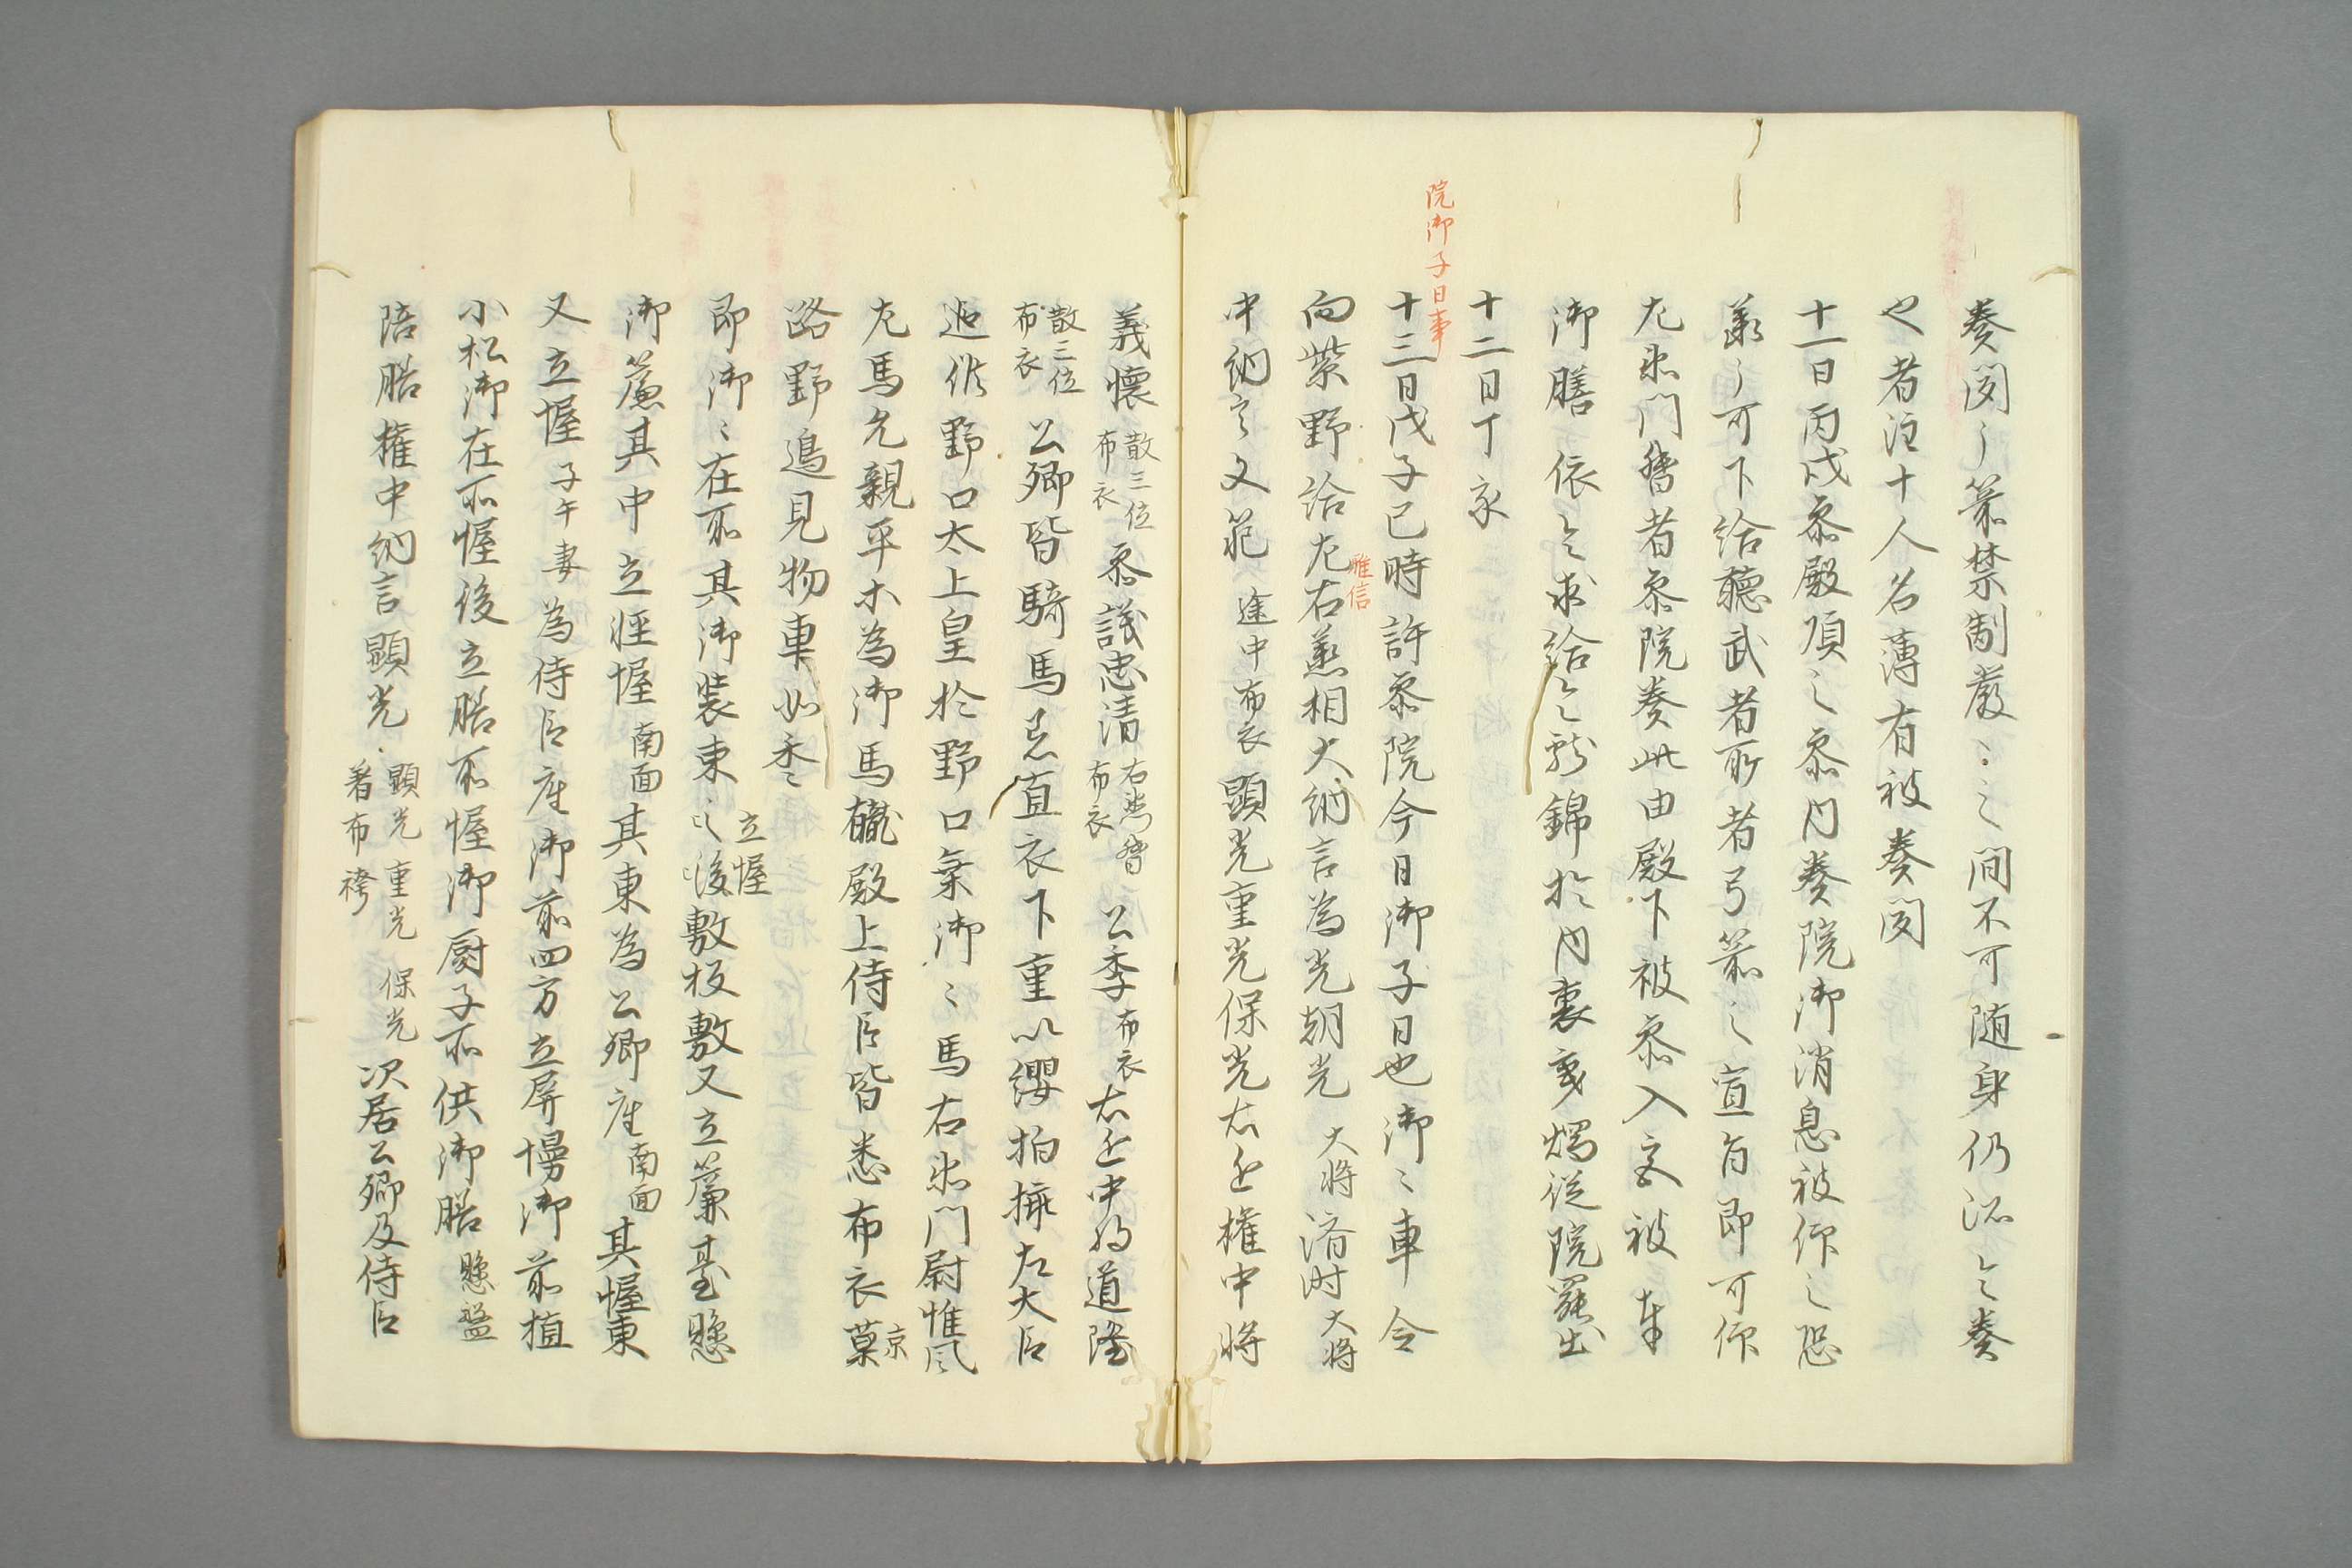 奏聞之箭禁制嚴〻之間不可随身仍所令奏
也者注十人名薄有被奏聞
十一日丙戌参殿頃之参内奏院御消息被仰之恐
承之可下給聴武者所者弓箭之宣旨即可仰
左衛門督者参院奏此由殿下被参入亥被奉
御膳依令求給令
錦於内裏
従院罷出
十二日丁亥
院御子日事
十三日戊子巳時許参院今日御子日也御〻車令
向紫野給左右丞相大納言為光朝光 大将 済時 大将
雅信
中納言文範 途中布衣 顕光重光保光右近権中将
義懐 散三位布衣 参議忠清 右衛督布衣 公季 布衣 右近中将道隆
散三位布衣 公卿皆騎馬
直衣下重以纓柏
左大臣
追候野口太上皇於野口乗御〻馬右衛門尉惟風
左馬允親平等為御馬
殿上侍臣皆悉布衣
京
路野邊見物車如
即御〻在所其御装束之後敷板敷又立簾臺懸
立幄
御簾其中立
幄 南面 其東為公卿座 南面 其幄東
又立幄 子午妻 為侍臣座御前四方立屏幔御前植
小松御在所幄後立膳所幄御厨子所供御膳 懸盤
陪膳権中納言顕光 顕光 重光 保光 著布袴 次居公卿及侍臣